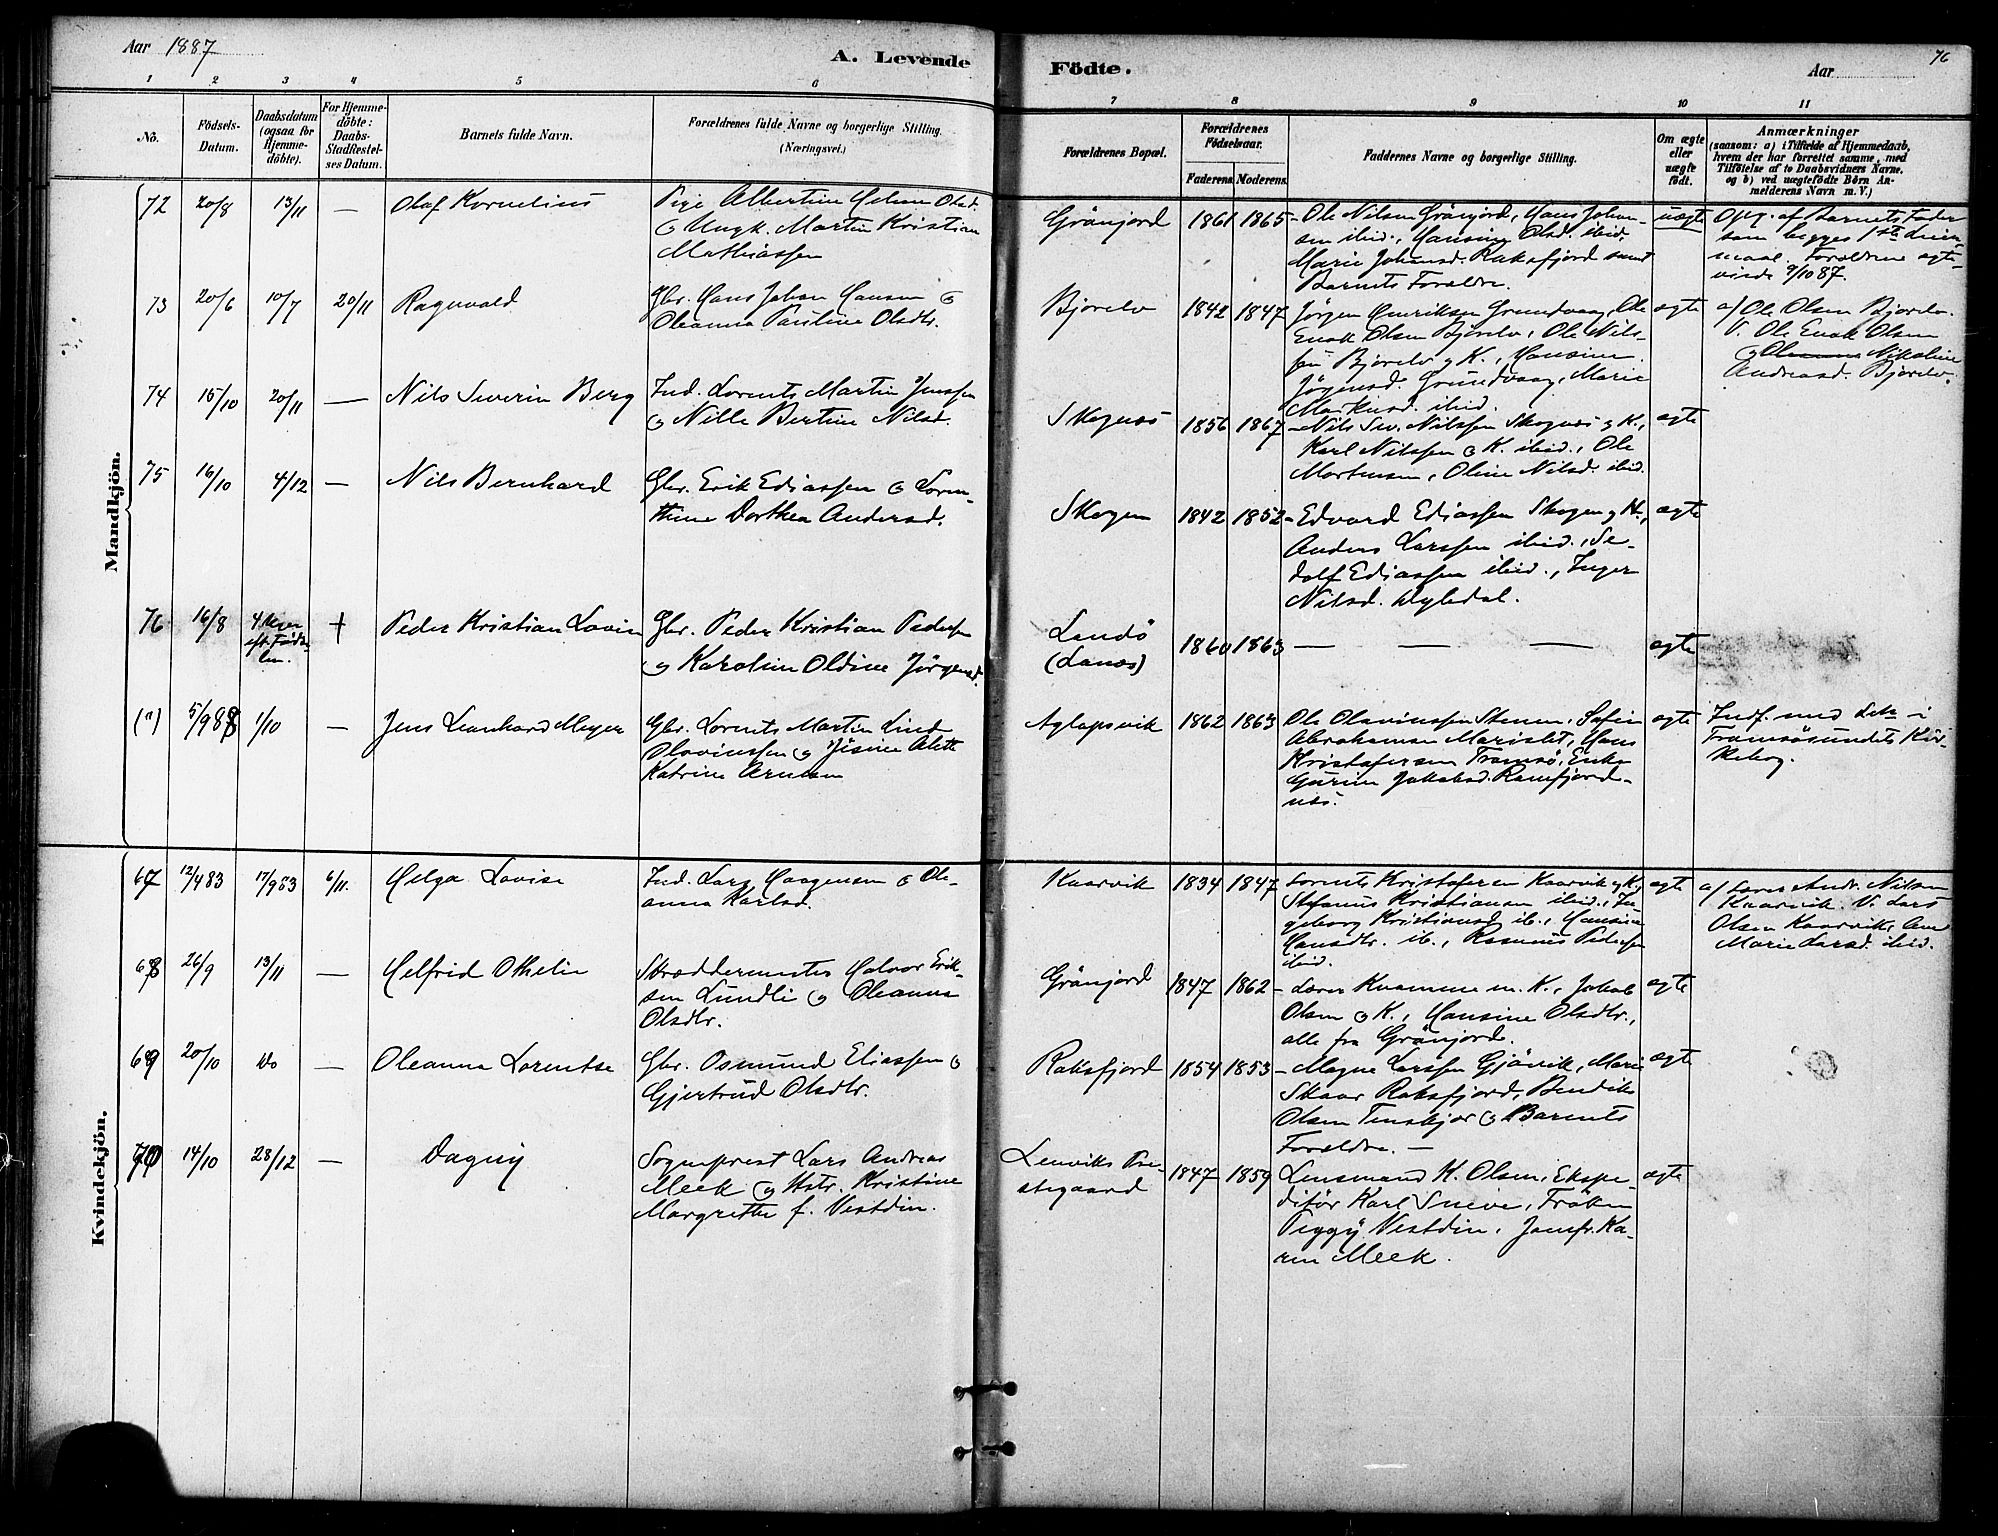 Aar 1887
A. Levende
Födte.
Aar
76
1 2 3 4 5 6 7 8 9 10 11
No.
Födsels-
Datum.
Daabsdatum
(ogsaa for
Hjemme-
döbte).
For Hjemme-
döbte:
Daabs-
Stadfestel-
ses Datum.
Barnets fulde Navn.
Forældrenes fulde Navne og borgerlige Stilling.
(Næringsvei.)
Forældrenes Bopæl.
Forældrenes
Födselsaar.
Faderens. Moderens.
Faddernes Navne og borgerlige Stilling.
Om ægte
eller
uægte
födt.
Anmærkninger
(saasom: a) i Tilfælde af Hjemmedaab,
hvem der har forrettet samme, med
Tilföielse af to Daabsvidners Navne.
og b) ved uægtefödte Börn An-
melderens Navn m. V.)
Mandkjön.
72 20/8 13/11 — Olaf Kornelius
Pige Albertine Helene Olsd.
og Ungk. Martin Kristian
Mathiassen
Grånjord 1861 1865
Ole Nilsen Grånjord, Hans Johan-
sen ibid., Hansine Olsd. ibid.
Marie Johansd. Raksfjord samt
Barnets Forældre.
uægte
Opg. af Barnets Fader
som begges 1ste Leier-
maal. Forældrene ægte-
viede 9/10 87.
73 20/6 10/7 20/11 Ragnvald
Gbr. Hans Johan Hansen og
Oleanna Pauline Olsdtr.
Bjorelv 1842 1847
Jørgen Henriksen Grundvaag, Ole
Enok Olsen Bjorelv, Ole Nils-
sen Bjorelv og K., Hansine
Jørgensd. Grundvaag, Marie
Markusd. ibid.
ægte
a/ Ole Olsen Bjorelv.
V. Ole Enok Olsen
og Nikoline
Andreasd. Bjorelv.
74 15/10 20/11 — Nils Severin Berg
Ind. Lorents Martin Jenssen
og Nille Bertine Nilsd.
Skognæs 1856 1867
Nils Sev. Nilssen Skognæs og K.,
Karl Nilssen og K. ibid., Ole
Mortensen, Oline Nilsd. ibid.
ægte
75 16/10 4/12 — Nils Bernhard
Gbr. Erik Ediassen og Loren-
thine Dorthea Andersd.
Skogen 1842 1852
Edvard Ediassen Skogen og K.,
Anders Larssen ibid., Se-
dolf Ediassen ibid., Inger
Nilsd.
ægte
76 16/8 4 Uger
eft. Føds-
len. +
Peder Kristian Lovin
Gbr. Peder Kristian Pedersen
og Karoline Oldine Jørgensd.
Lendö
(Lanæs) 1860 1863 — — —
ægte
(") 5/9 88 1/10 — Jens Leonhard Meyer
Gbr. Lorents Martin Lind
Olavinssen og Jisine Alette
Katrine Arnesen
Aglapsvik 1862 1863
Ole Olavinssen Stenen, Sofie
Abrahamsen Marislet, Hans
Kristofersen Tromsø, Enke
Gurine Jakobsd. Ramfjord-
næs.
ægte
Indf. med Lit. i
Tromsösundets Kir-
kebog.
Kvindekjön.
67 12/4 83 17/9 83 6/11 Helga Lovise
Ind. Lars Haagensen og Ole-
anna Karlsd.
Kaarvik 1834 1847
Lorents Kristofersen Kaarvik og K.,
Stefanus Kristiansen ibid., In-
geborg Kristiansd. ib., Hansine
Hansdtr. ib., Rasmus Pedersen
ibid.
ægte
a/ Lærer Andr. Nilsen
Kaarvik. V. Lars
Olsen Kaarvik, Ane
Marie Larsd. ibid.
68 26/9 13/11 — Helfrid Othelie
Skræddermester Halvor Erik-
sen Lundli og Oleanna
Olsdtr.
Grånjord 1847 1862
Lærer Kvamme m. K., Jakob
Olsen og K., Hansine Olsdtr.,
alle fra Grånjord.
ægte
69 20/10 do — Oleanna Lorentse
Gbr. Osmund Eliassen og
Gjertrud Olsdtr.
Raksfjord 1854 1853
Mogne Larssen Gjövik, Marie
Skaar Raksfjord, Bendik
Olsen Tenskjær og Barnets
Forældre. —
ægte
70 14/10 28/12 — Dagny
Sogneprest Lars Andreas
Meek og Hstr. Kristine
Margrethe f. Vestdin.
Lenviks Præ-
stegaard 1847 1859
Lensmand K. Olsen, Ekspe-
ditör Karl Sneve, Fröken
Peggy Vestdin, Jomfr. Ka-
ren Meek.
ægte